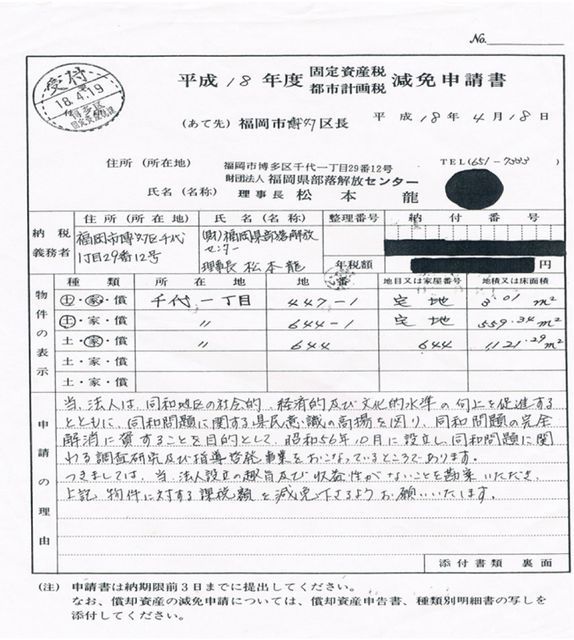 No.
受付
18.4.19
平成18年度 固定資産税 都市計画税 減免申請書
(あて先) 福岡市博多区長 平成18年4月18日
住所(所在地) 福岡市博多区千代一丁目29番12号 TEL(651-7333)
財団法人 福岡県部落解放センター
氏名(名称) 理事長 松本 龍
納税義務者 住所(所在地) 氏名(名称) 整理番号 納付番号
福岡市博多区千代 1丁目29番12号 (財)福岡県部落解放センター 理事長 松本龍 年税額 円
物件の表示 種類 所在地 地番 地目又は家屋番号 地積又は床面積
土・家・償 千代一丁目 447-1 宅地 3.01 m²
土・家・償 〃 644-1 宅地 559.34 m²
土・家・償 〃 644 644 1121.29 m²
土・家・償
土・家・償
申請の理由
当法人は、同和地区の社会的、経済的及び文化的水準の向上を促進する
とともに、同和問題に関する県民意識の高揚を図り、同和問題の完全
解消に資することを目的として、昭和56年10月に設立し、同和問題に関
わる調査研究及び指導啓発事業をおこなっているところであります。
つきましては、当法人設立の趣旨及び収益性がないことを勘案いただき、
上記物件に対する課税額を減免下さるようお願いいたします。
添付書類 裏面
(注) 申請書は納期限前3日までに提出してください。
なお、償却資産の減免申請については、償却資産申告書、種類別明細書の写しを
添付してください。